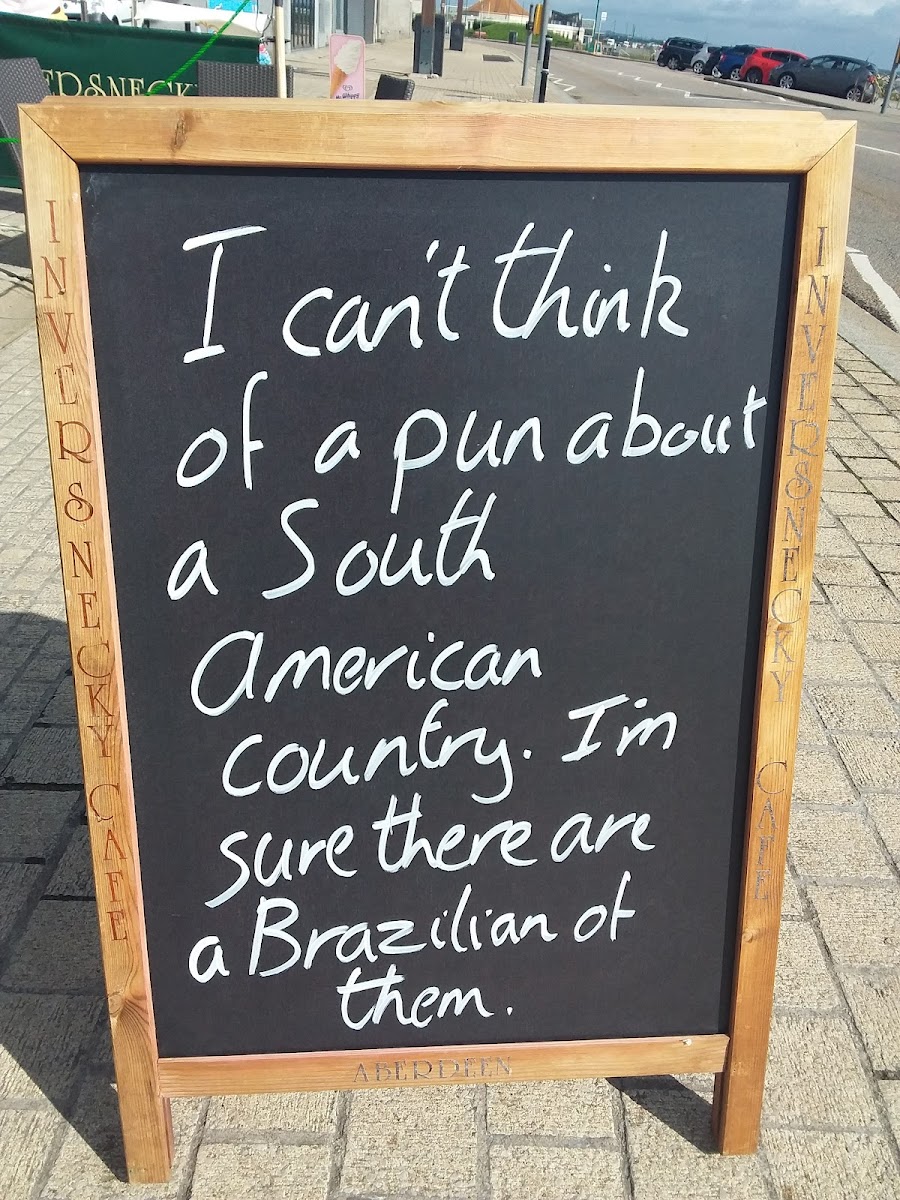 ERSNECK
INVERSNECKY CAFE
I can't think
of a pun about
a South
American
country. I'm
sure there are
a Brazilian of
them.
INVERSNECKY CAFE
ABERDEEN